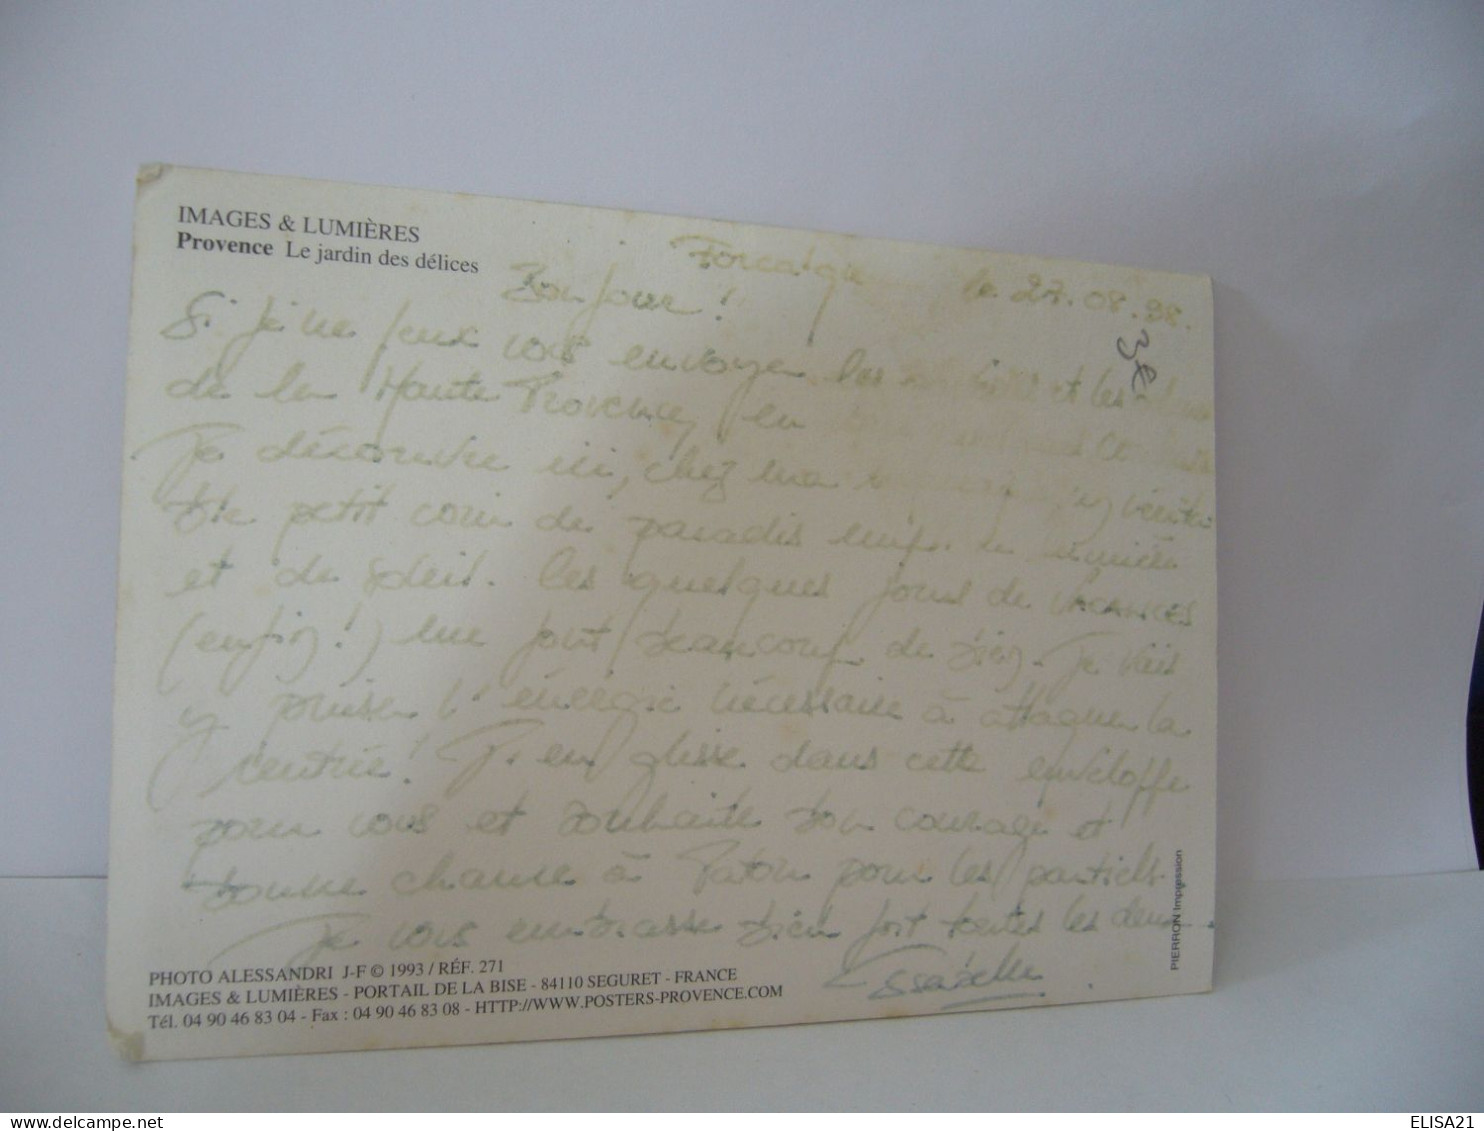 IMAGES & LUMIÈRES
Provence Le jardin des délices
le 27.08.98.
Bonjour !
3€
Si je ne peux vous envoyer les et les
de la Haute Provence, en
Je découvre ici, chez ma
ble petit coin de paradis
et de soleil. Les quelques jours de VACANCES
(enfin !) me font beaucoup de bien. Je vais
y puiser l'énergie nécessaire à attaquer la
rentrée ! J'en glisse dans cette enveloppe
pour vous et souhaite bon courage et
bonne chance à pour les partiels.
Je vous embrasse bien fort toutes les deux.
PHOTO ALESSANDRI J-F © 1993 / RÉF. 271
IMAGES & LUMIÈRES - PORTAIL DE LA BISE - 84110 SEGURET - FRANCE
Tél. 04 90 46 83 04 - Fax : 04 90 46 83 08 - HTTP://WWW.POSTERS-PROVENCE.COM
PIERRON Impression
ELISA21